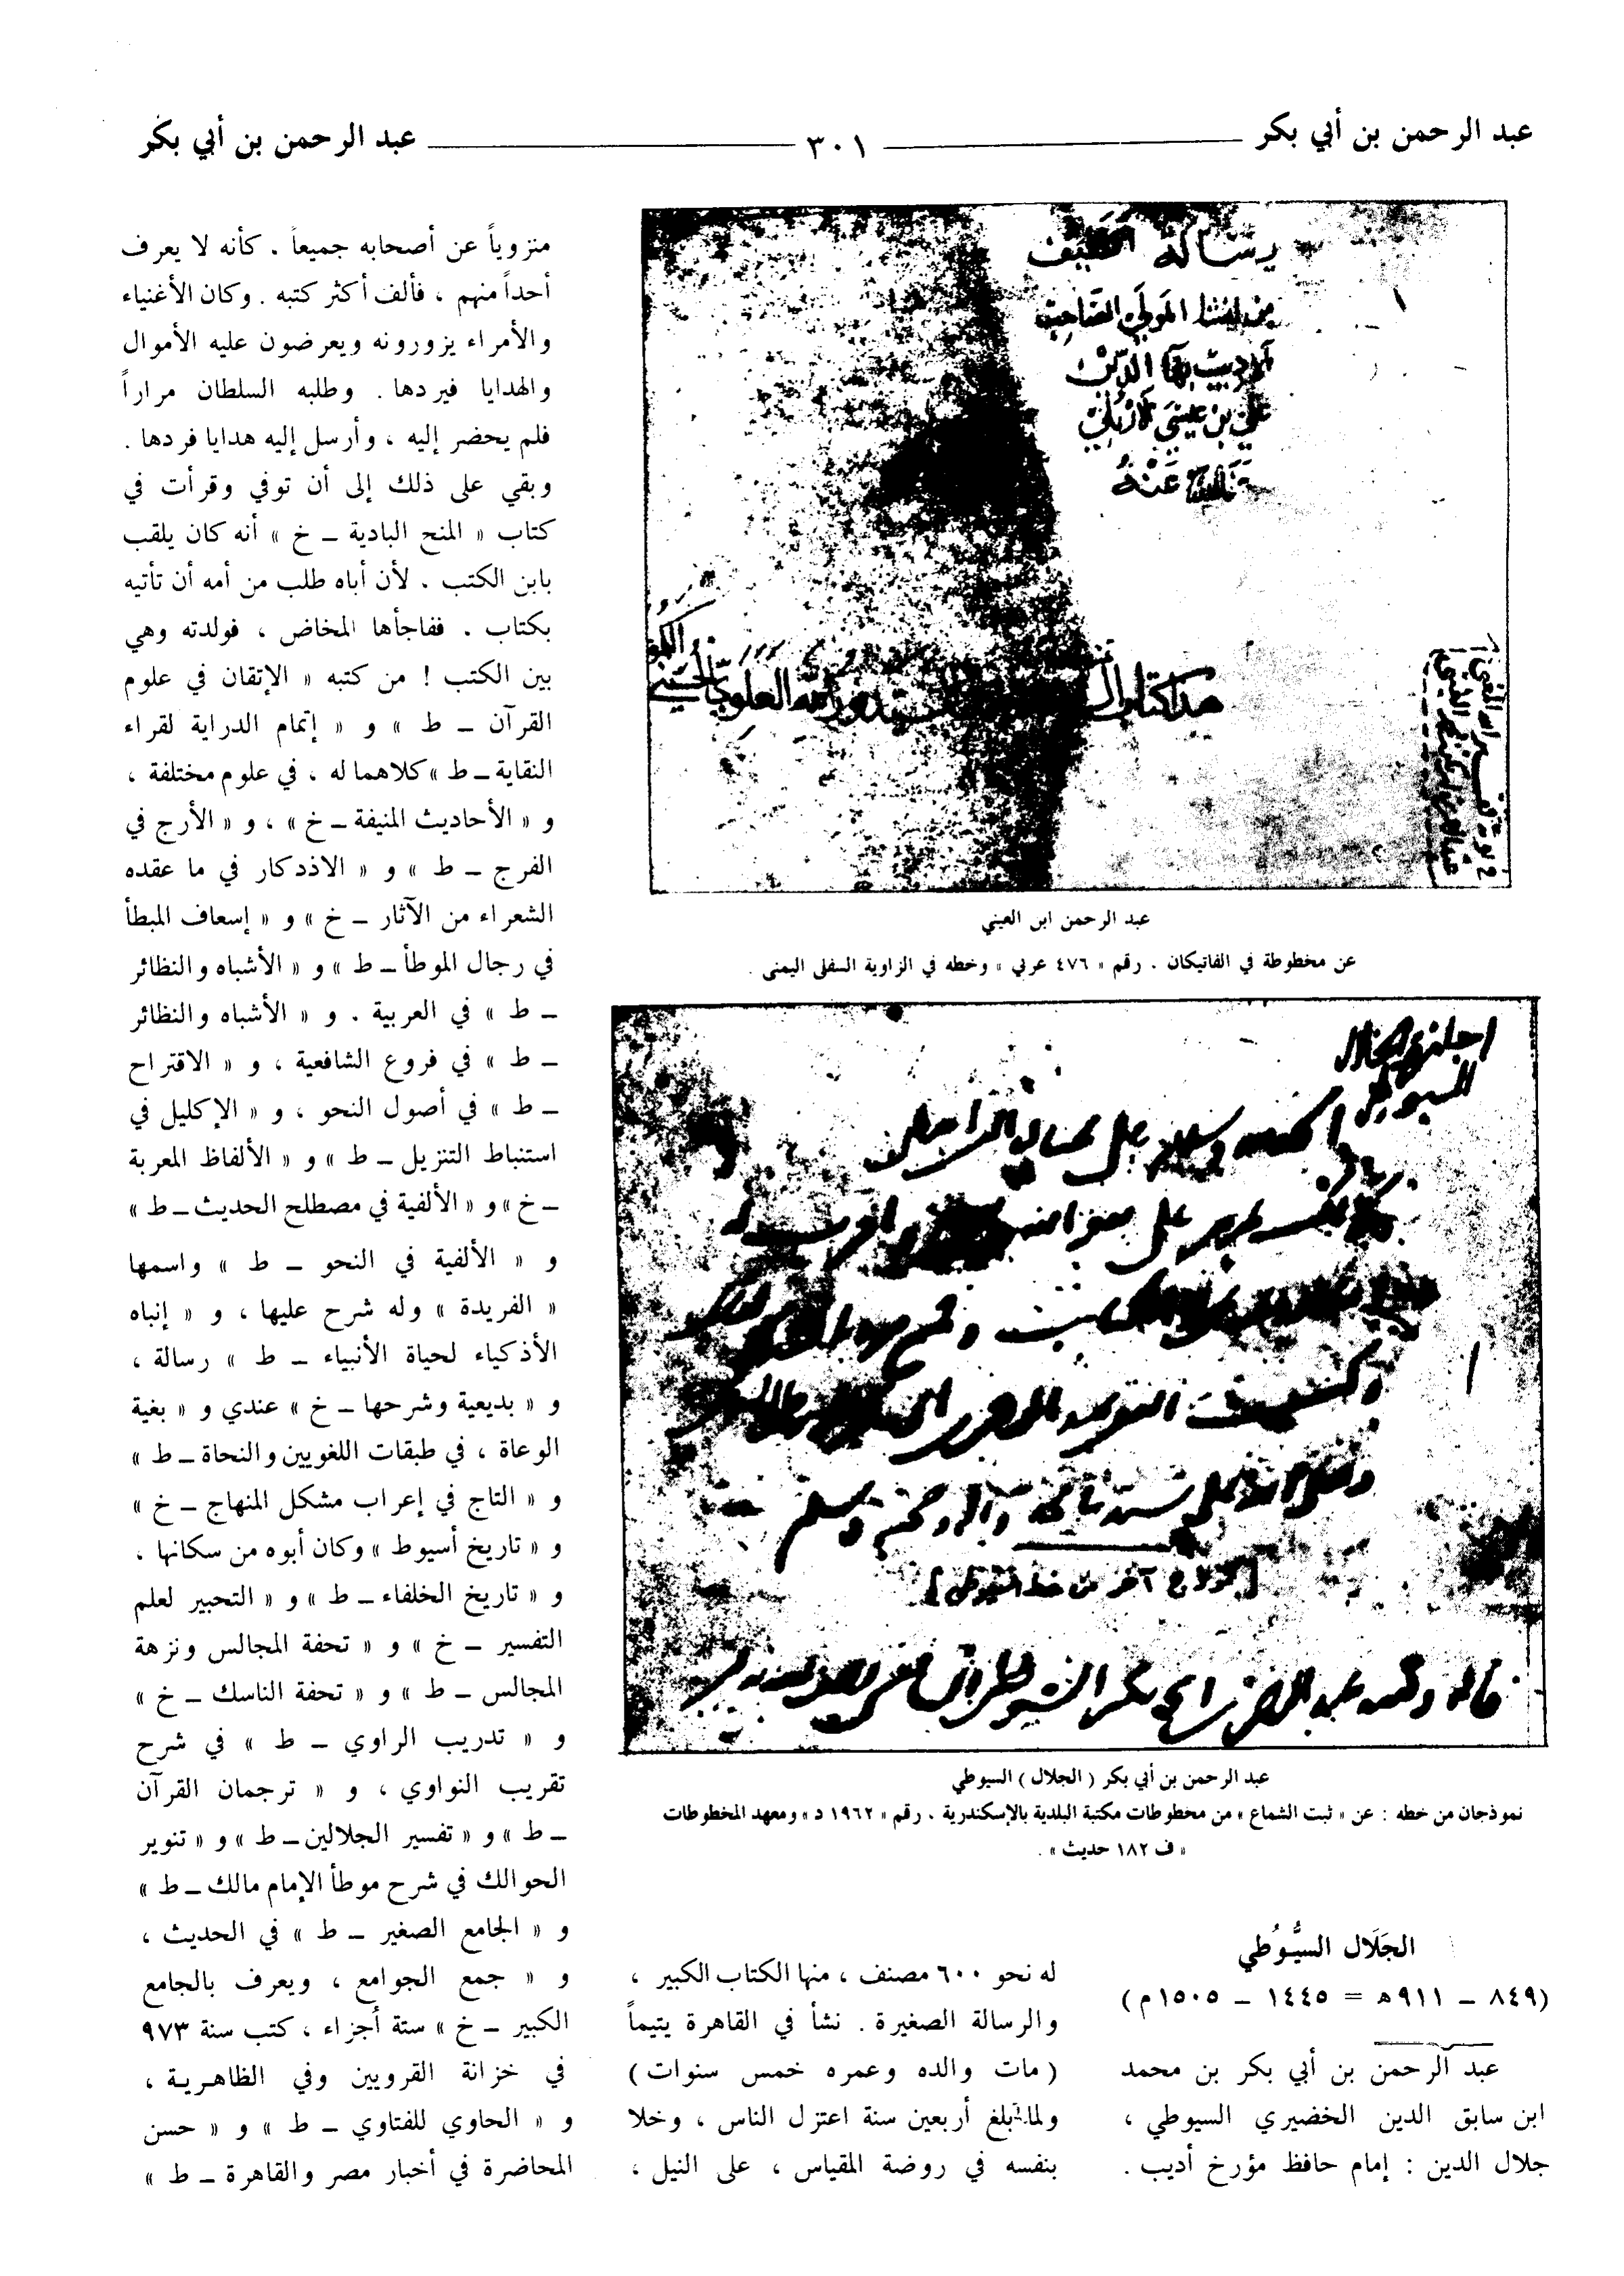 عبد الرحمن بن أبي بكر ٣٠١ عبد الرحمن بن أبي بكر
رسالة الطيف
من إنشاء المولى الصاحب
علي بن عيسى الأربلي
عنه
هذا كتاب
عبد الرحمن ابن العيني
عن مخطوطة في الفاتيكان . رقم « ٤٧٦ عربي » وخطه في الزاوية السفلى اليمنى .
السيوطي
الحمد لله وسلام على عباده الذين اصطفى
وصلى الله على سيدنا محمد وآله وصحبه وسلم
[نموذج آخر من خط السيوطي]
قاله وكتبه عبد الرحمن بن أبي بكر السيوطي
عبد الرحمن بن أبي بكر ( الجلال ) السيوطي
نموذجان من خطه : عن « ثبت الشماع » من مخطوطات مكتبة البلدية بالإسكندرية . رقم « ١٩٦٢ د » ومعهد المخطوطات
« ف ١٨٢ حديث » .
الجَلَال السيُّوُطي
(٨٤٩ - ٩١١ه = ١٤٤٥ - ١٥٠٥م)
عبد الرحمن بن أبي بكر بن محمد
ابن سابق الدين الخضيري السيوطي ،
جلال الدين : إمام حافظ مؤرخ أديب .
له نحو ٦٠٠ مصنف ، منها الكتاب الكبير ،
والرسالة الصغيرة . نشأ في القاهرة يتيماً
( مات والده وعمره خمس سنوات )
ولما بلغ أربعين سنة اعتزل الناس ، وخلا
بنفسه في روضة المقياس ، على النيل ،
منزوياً عن أصحابه جميعاً . كأنه لا يعرف
أحداً منهم ، فألف أكثر كتبه . وكان الأغنياء
والأمراء يزورونه ويعرضون عليه الأموال
والهدايا فيردها . وطلبه السلطان مراراً
فلم يحضر إليه ، وأرسل إليه هدايا فردها .
وبقي على ذلك إلى أن توفي وقرأت في
كتاب « المنح البادية - خ » أنه كان يلقب
بابن الكتب . لأن أباه طلب من أمه أن تأتيه
بكتاب . ففاجأها المخاض ، فولدته وهي
بين الكتب ! من كتبه « الإتقان في علوم
القرآن - ط » و « إتمام الدراية لقراء
النقاية - ط » كلاهما له ، في علوم مختلفة ،
و « الأحاديث المنيفة - خ » ، و « الأرج في
الفرج - ط » و « الاذدكار في ما عقده
الشعراء من الآثار - خ » و « إسعاف المبطأ
في رجال الموطأ - ط » و « الأشباه والنظائر
- ط » في العربية . و « الأشباه والنظائر
- ط » في فروع الشافعية ، و « الاقتراح
- ط » في أصول النحو ، و « الإكليل في
استنباط التنزيل - ط » و « الألفاظ المعربة
- خ » و « الألفية في مصطلح الحديث - ط »
و « الألفية في النحو - ط » واسمها
« الفريدة » وله شرح عليها ، و « إنباه
الأذكياء لحياة الأنبياء - ط » رسالة ،
و « بديعية وشرحها - خ » عندي و « بغية
الوعاة ، في طبقات اللغويين والنحاة - ط »
و « التاج في إعراب مشكل المنهاج - خ »
و « تاريخ أسيوط » وكان أبوه من سكانها ،
و « تاريخ الخلفاء - ط » و « التحبير لعلم
التفسير - خ » و « تحفة المجالس ونزهة
المجالس - ط » و « تحفة الناسك - خ »
و « تدريب الراوي - ط » في شرح
تقريب النواوي ، و « ترجمان القرآن
- ط » و « تفسير الجلالين - ط » و « تنوير
الحوالك في شرح موطأ الإمام مالك - ط »
و « الجامع الصغير - ط » في الحديث ،
و « جمع الجوامع ، ويعرف بالجامع
الكبير - خ » ستة أجزاء ، كتب سنة ٩٧٣
في خزانة القرويين وفي الظاهرية ،
و « الحاوي للفتاوي - ط » و « حسن
المحاضرة في أخبار مصر والقاهرة - ط »